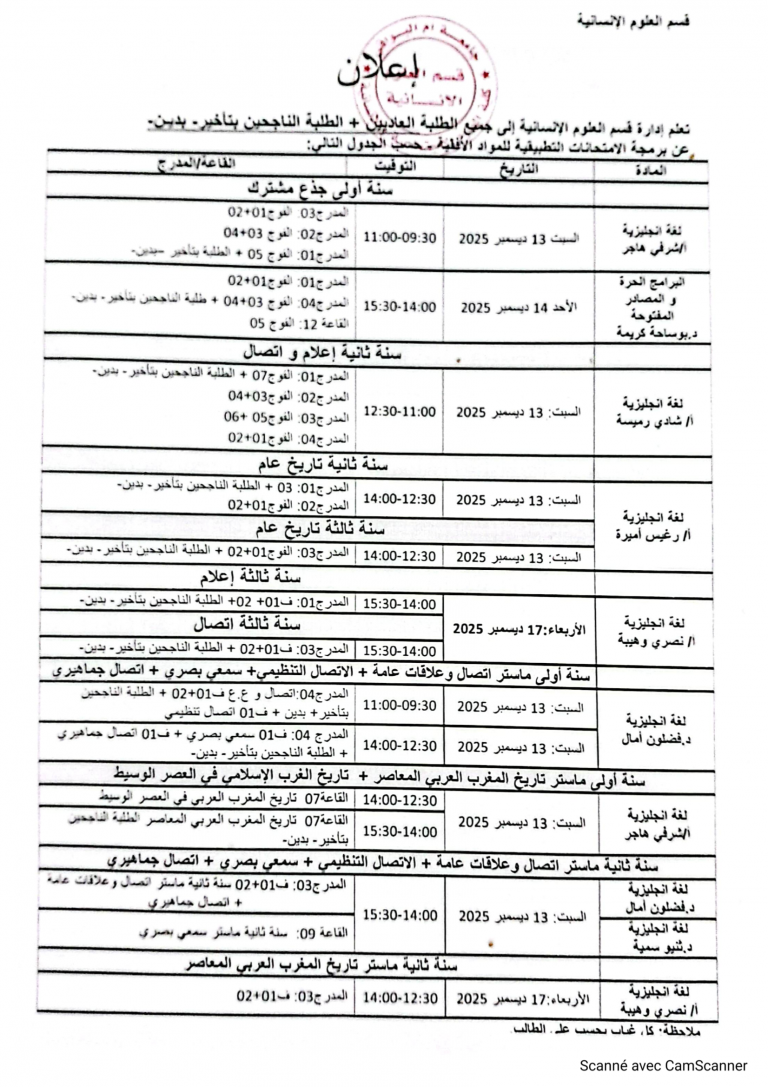 قسم العلوم الإنسانية
إعلان
تعلم إدارة قسم العلوم الإنسانية إلى جميع الطلبة العاديين + الطلبة الناجحين بتأخير- بدين-
عن برمجة الامتحانات التطبيقية للمواد الأفقية حسب الجدول التالي:
المادة التاريخ التوقيت القاعة/المدرج
سنة أولى جذع مشترك
لغة انجليزية
أ/شرفي هاجر
السبت 13 ديسمبر 2025
11:00-09:30
المدرج03: الفوج01+02
المدرج02: الفوج 03+04
المدرج01: الفوج 05 + الطلبة بتأخير –بدين-
البرامج الحرة
و المصادر
المفتوحة
د.بوساحة كريمة
الأحد 14 ديسمبر 2025
15:30-14:00
المدرج01: الفوج01+02
المدرج04: الفوج 03+04 + طلبة الناجحين بتأخير- بدين-
القاعة 12: الفوج 05
سنة ثانية إعلام و اتصال
لغة انجليزية
أ/ شادي رميسة
السبت: 13 ديسمبر 2025
12:30-11:00
المدرج01: الفوج07 + الطلبة الناجحين بتأخير- بدين-
المدرج02: الفوج03+04
المدرج03: الفوج05 +06
المدرج04: الفوج01+02
سنة ثانية تاريخ عام
لغة انجليزية
أ/ رغيس أميرة
السبت: 13 ديسمبر 2025
14:00-12:30
المدرج01: 03 + الطلبة الناجحين بتأخير- بدين-
المدرج02: الفوج01+02
سنة ثالثة تاريخ عام
السبت: 13 ديسمبر 2025
14:00-12:30
المدرج03: الفوج01+02 + الطلبة الناجحين بتأخير- بدين-
سنة ثالثة إعلام
لغة انجليزية
أ/ نصري وهيبة
الأربعاء:17 ديسمبر 2025
15:30-14:00
المدرج01: ف01+ 02+ الطلبة الناجحين بتأخير- بدين-
سنة ثالثة اتصال
15:30-14:00
المدرج03: ف01+02 + الطلبة الناجحين بتأخير- بدين-
سنة أولى ماستر اتصال وعلاقات عامة + الاتصال التنظيمي+ سمعي بصري + اتصال جماهيري
لغة انجليزية
د.فضلون أمال
السبت: 13 ديسمبر 2025
11:00-09:30
المدرج04:اتصال و ع.ع ف01+02 + الطلبة الناجحين
بتأخير+ بدين + ف01 اتصال تنظيمي
السبت: 13 ديسمبر 2025
14:00-12:30
المدرج 04: ف01 سمعي بصري + ف01 اتصال جماهيري
+ الطلبة الناجحين بتأخير- بدين-
سنة أولى ماستر تاريخ المغرب العربي المعاصر + تاريخ الغرب الإسلامي في العصر الوسيط
لغة انجليزية
أ/شرفي هاجر
السبت: 13 ديسمبر 2025
14:00-12:30
القاعة07 تاريخ المغرب العربي في العصر الوسيط
15:30-14:00
القاعة07 تاريخ المغرب العربي المعاصر الطلبة الناجحين
بتأخير- بدين-
سنة ثانية ماستر اتصال وعلاقات عامة + الاتصال التنظيمي + سمعي بصري + اتصال جماهيري
لغة انجليزية
د.فضلون أمال
السبت: 13 ديسمبر 2025
15:30-14:00
المدرج03: ف01+02 سنة ثانية ماستر اتصال وعلاقات عامة
+ اتصال جماهيري
لغة انجليزية
د.ثنيو سمية
القاعة 09: سنة ثانية ماستر سمعي بصري
سنة ثانية ماستر تاريخ المغرب العربي المعاصر
لغة انجليزية
أ/ نصري وهيبة
الأربعاء:17 ديسمبر 2025
14:00-12:30
المدرج03: ف01+02
ملاحظة: كل غياب يحسب على الطالب.
Scanné avec CamScanner